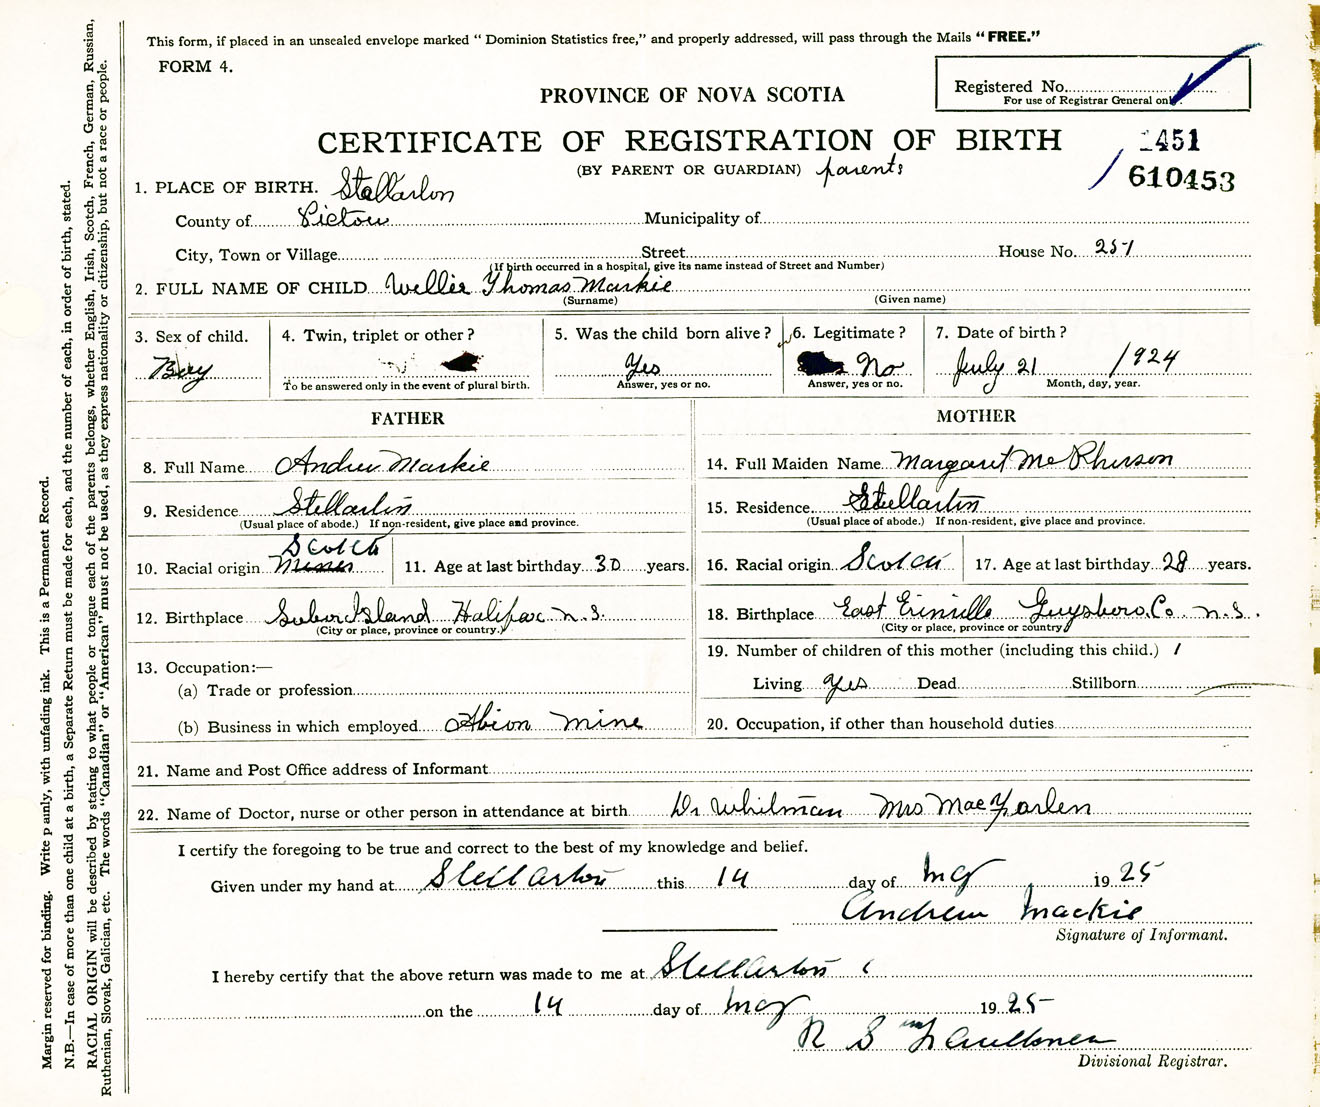 This form, if placed in an unsealed envelope marked “ Dominion Statistics free,” and properly addressed, will pass through the Mails “FREE.”
FORM 4.
Registered No.
For use of Registrar General only.
PROVINCE OF NOVA SCOTIA
CERTIFICATE OF REGISTRATION OF BIRTH
451
(BY PARENT OR GUARDIAN) parents
610453
1. PLACE OF BIRTH. Stellarton
County of Pictou Municipality of
City, Town or Village Street House No. 251
(If birth occurred in a hospital, give its name instead of Street and Number)
2. FULL NAME OF CHILD Thomas Mackie
(Surname) (Given name)
3. Sex of child. 4. Twin, triplet or other ? 5. Was the child born alive ? 6. Legitimate ? 7. Date of birth ?
Boy Yes No July 21 1924
To be answered only in the event of plural birth. Answer, yes or no. Answer, yes or no. Month, day, year.
FATHER MOTHER
8. Full Name Andrew Mackie 14. Full Maiden Name Margaret McPherson
9. Residence Stellarton 15. Residence Stellarton
(Usual place of abode.) If non-resident, give place and province. (Usual place of abode.) If non-resident, give place and province.
Scotch
10. Racial origin 11. Age at last birthday 30 years. 16. Racial origin Scotch 17. Age at last birthday 28 years.
12. Birthplace Island Halifax N.S. 18. Birthplace East Guysboro Co N.S.
(City or place, province or country.) (City or place, province or country
13. Occupation:— 19. Number of children of this mother (including this child.) 1
(a) Trade or profession Living yes Dead Stillborn
(b) Business in which employed Albion Mine 20. Occupation, if other than household duties
21. Name and Post Office address of Informant
22. Name of Doctor, nurse or other person in attendance at birth Dr Whitman Mrs MacFarlen
I certify the foregoing to be true and correct to the best of my knowledge and belief.
Given under my hand at Stellarton this 14 day of May 1925
Andrew Mackie
Signature of Informant.
I hereby certify that the above return was made to me at Stellarton
on the 14 day of May 1925
R S Faulkner
Divisional Registrar.
Margin reserved for binding. Write plainly, with unfading ink. This is a Permanent Record.
N.B.—In case of more than one child at a birth, a Separate Return must be made for each, and the number of each, in order of birth, stated.
RACIAL ORIGIN will be described by stating to what people or tongue each of the parents belongs, whether English, Irish, Scotch, French, German, Russian,
Ruthenian, Slovak, Galician, etc. The words “Canadian” or “American” must not be used, as they express nationality or citizenship, but not a race or people.